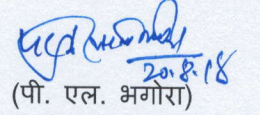 20.8.18
(पी. एल. भगोरा)